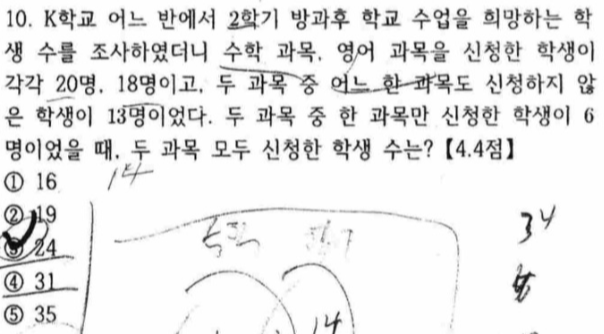 10. K학교 어느 반에서 2학기 방과후 학교 수업을 희망하는 학
생 수를 조사하였더니 수학 과목, 영어 과목을 신청한 학생이
각각 20명, 18명이고, 두 과목 중 어느 한 과목도 신청하지 않
은 학생이 13명이었다. 두 과목 중 한 과목만 신청한 학생이 6
명이었을 때, 두 과목 모두 신청한 학생 수는? 【4.4점】
① 16
14
② 19
③ 24
34
④ 31
⑤ 35
14